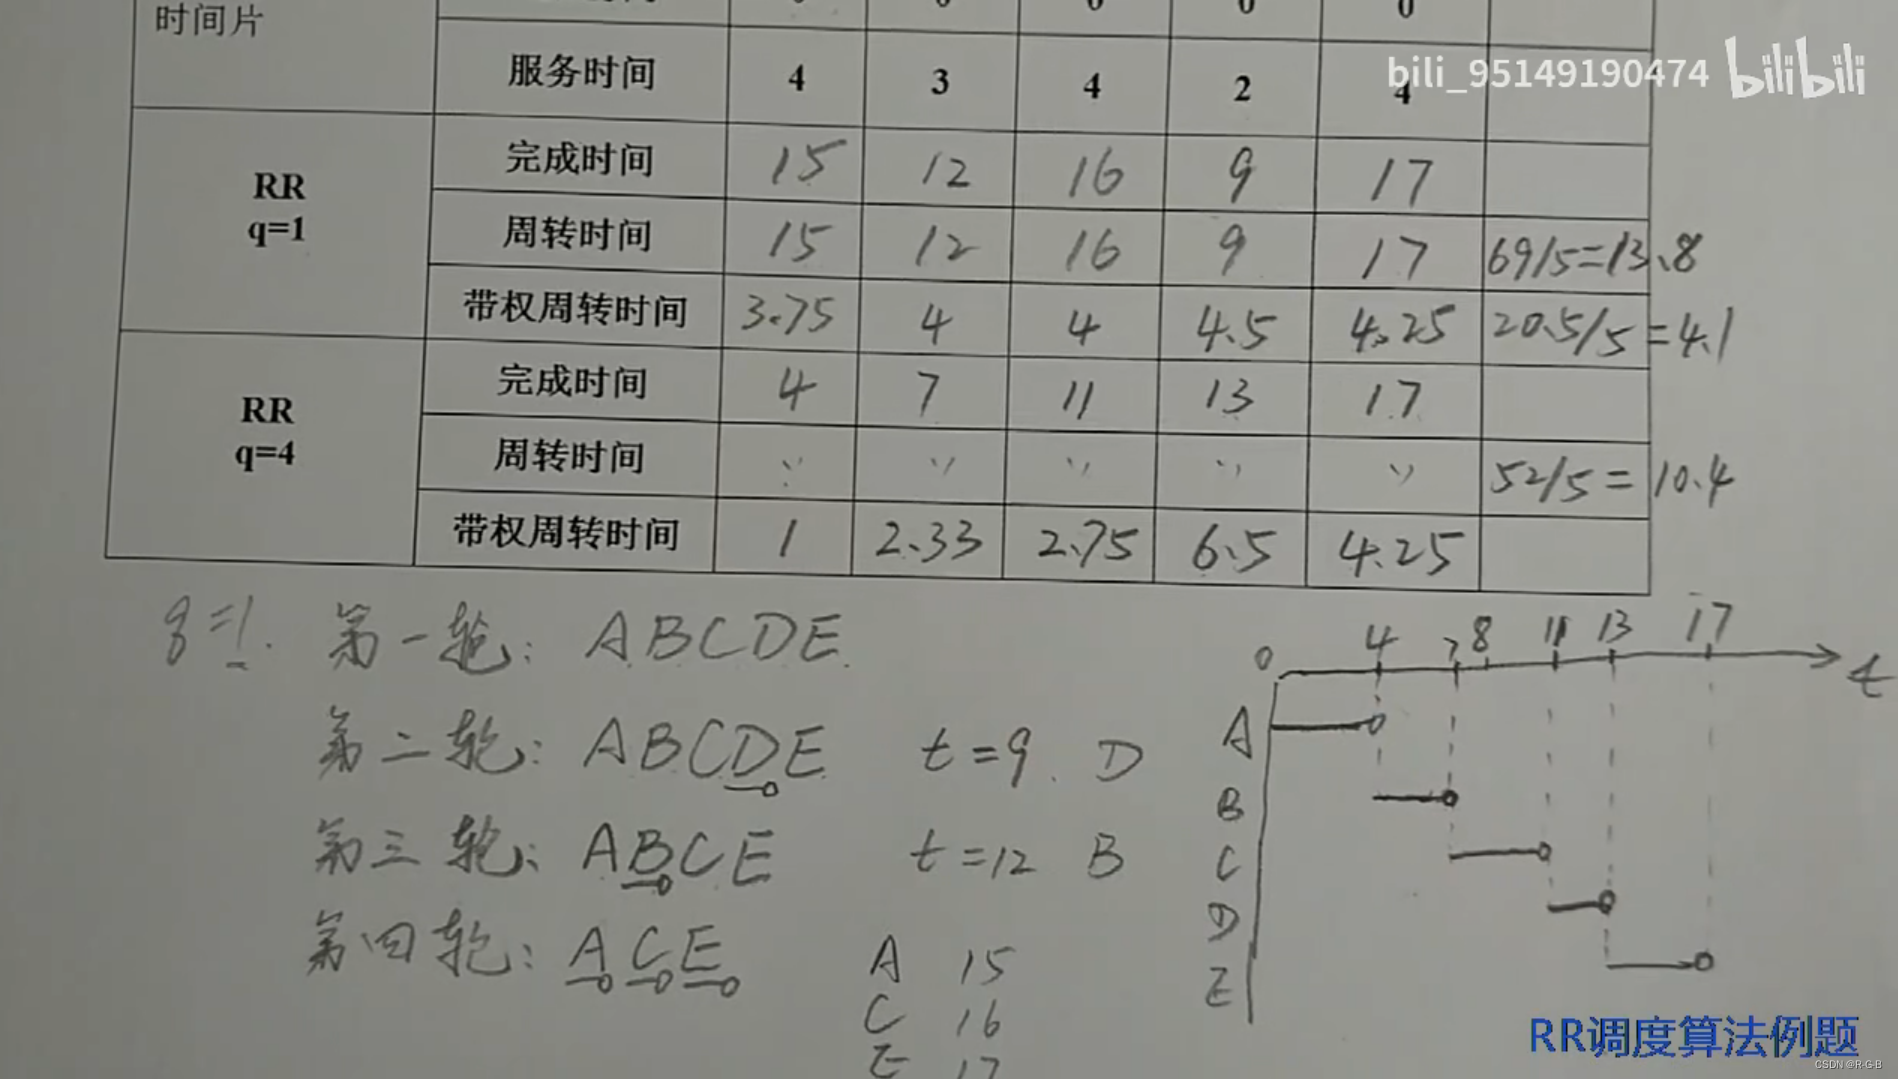 时间片 0 0 0 0 0
服务时间 4 3 4 2 4
bili_95149190474 bilibili
RR q=1 完成时间 15 12 16 9 17
周转时间 15 12 16 9 17 69/5=13.8
带权周转时间 3.75 4 4 4.5 4.25 20.5/5=4.1
RR q=4 完成时间 4 7 11 13 17
周转时间 52/5=10.4
带权周转时间 1 2.33 2.75 6.5 4.25
q=1. 第一轮: ABCDE
第二轮: ABCDE t=9 D
第三轮: ABCE t=12 B
第四轮: ACE A 15
C 16
E 17
0 4 7 8 11 13 17 t
A
B
C
D
E
RR调度算法例题
CSDN @R-G-B